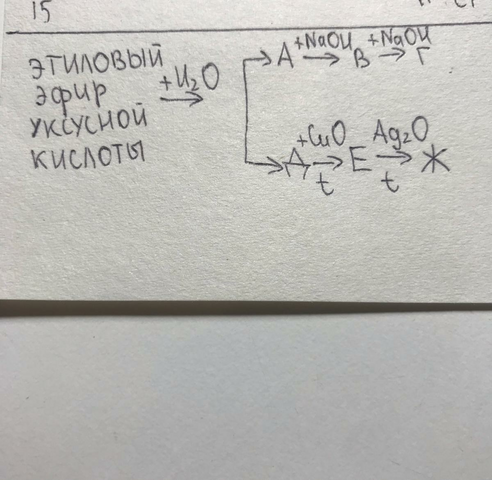 15
ЭТИЛОВЫЙ
ЭФИР
УКСУСНОЙ
КИСЛОТЫ
+H₂O →
→ А +NaOH → В +NaOH → Г
→ Д +CuO → t Е Ag₂O → t Ж